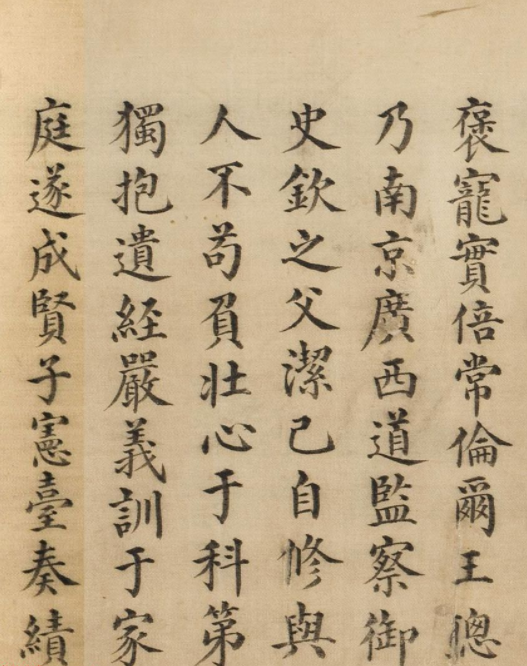 褒寵實倍常倫爾王聰
乃南京廣西道監察御
史欽之父潔己自修與
人不苟負壯心于科第
獨抱遺經嚴義訓于家
庭遂成賢子憲臺奏績